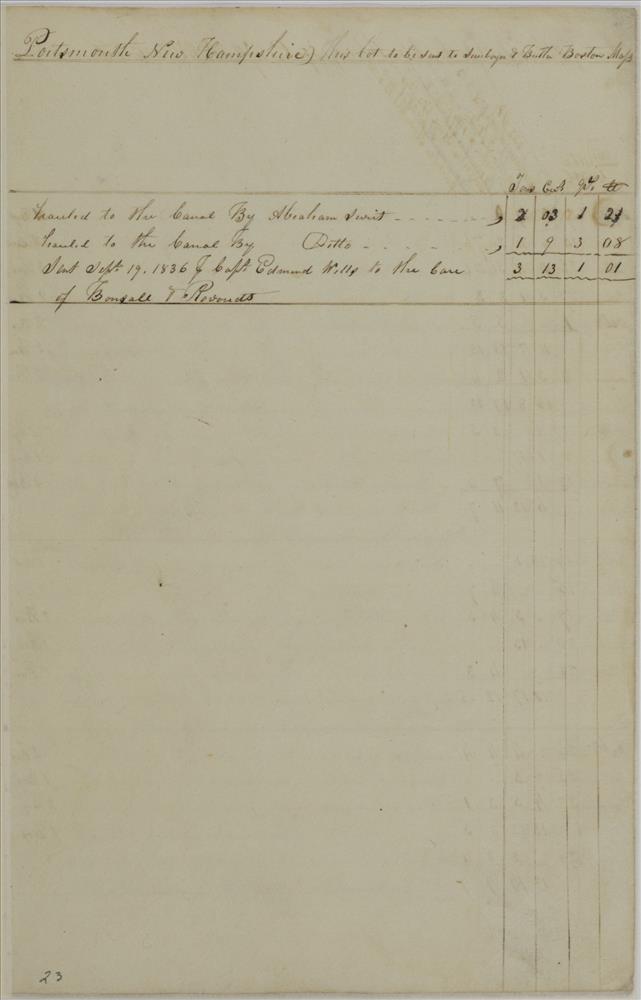 Portsmouth New Hampshire) This lot to be sent to & Butler Boston Mass
Tons Cwt Qrs lb
Hauled to the Canal By Abraham Swist - - - - - - - , 2 03 1 21
Hauled to the Canal By Ditto - - - - - , 1 9 3 08
Sent Sept 19. 1836 Capt Edmund Wells to the Care 3 13 1 01
of Bonsall &
23